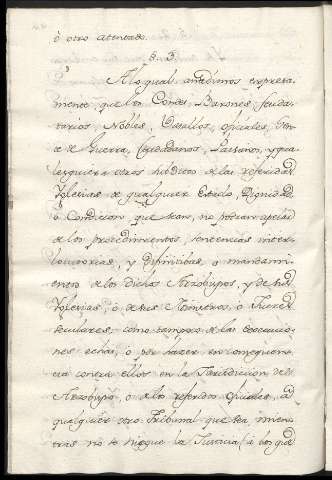 ò otro atentado.
§. 3.
A lo qual añadimos expresa-
mente, que los Condes, Barones, feuda-
tarios, Nobles, Vasallos, ofiziales, Gen-
te de Guerra, Ciudadanos, Paisanos, y qua-
lesquiera otros subditos de las referidas
Yglesias de qualquier Estado, Dignidad,
ò Condicion que sean, no podran apelar
de los procedimientos, sentencias inter-
locutorias, y difinitibas, o mandami-
entos de los dichos Arzobispos, y de sus
Yglesias, ò de sus Ministros, ò Juezes
seculares, como tampoco de las execucio-
nes echas, ò por hazer en consequen-
cia contra ellos en la Jurisdicion del
Arzobispo, ò de los referidos ofiziales, à
qualquier otro Tribunal que sea, mien-
tras no se niegue la Justicia, à los que